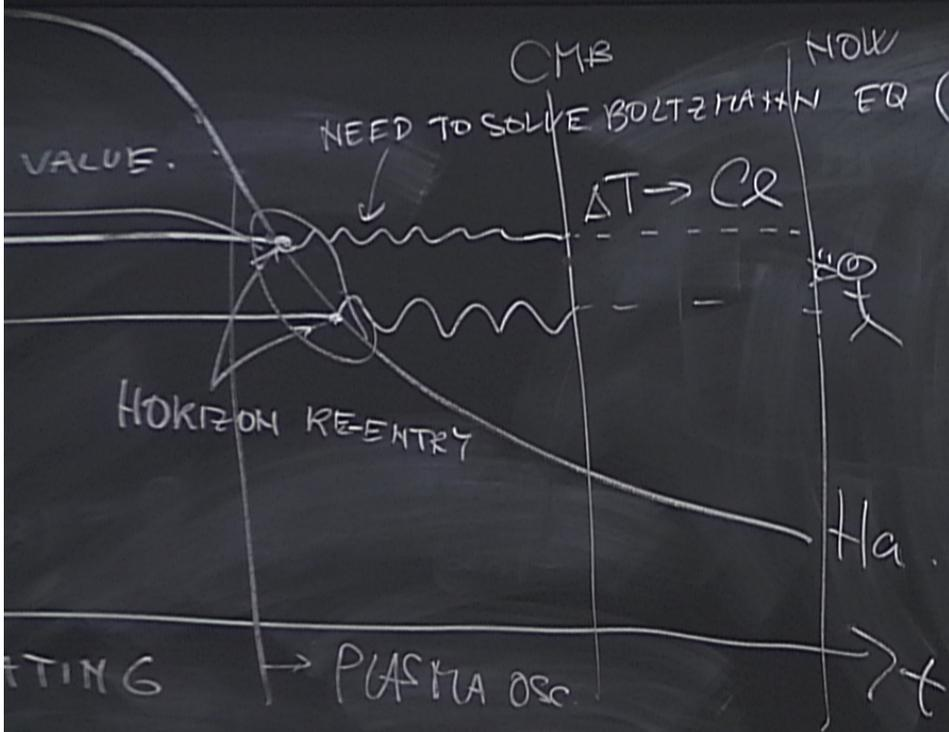 CMB
NOW
NEED TO SOLVE BOLTZMANN EQ (
VALUE.
ΔT → Cℓ
HORIZON RE-ENTRY
Ha.
ATING
→ PLASMA OSC.
t